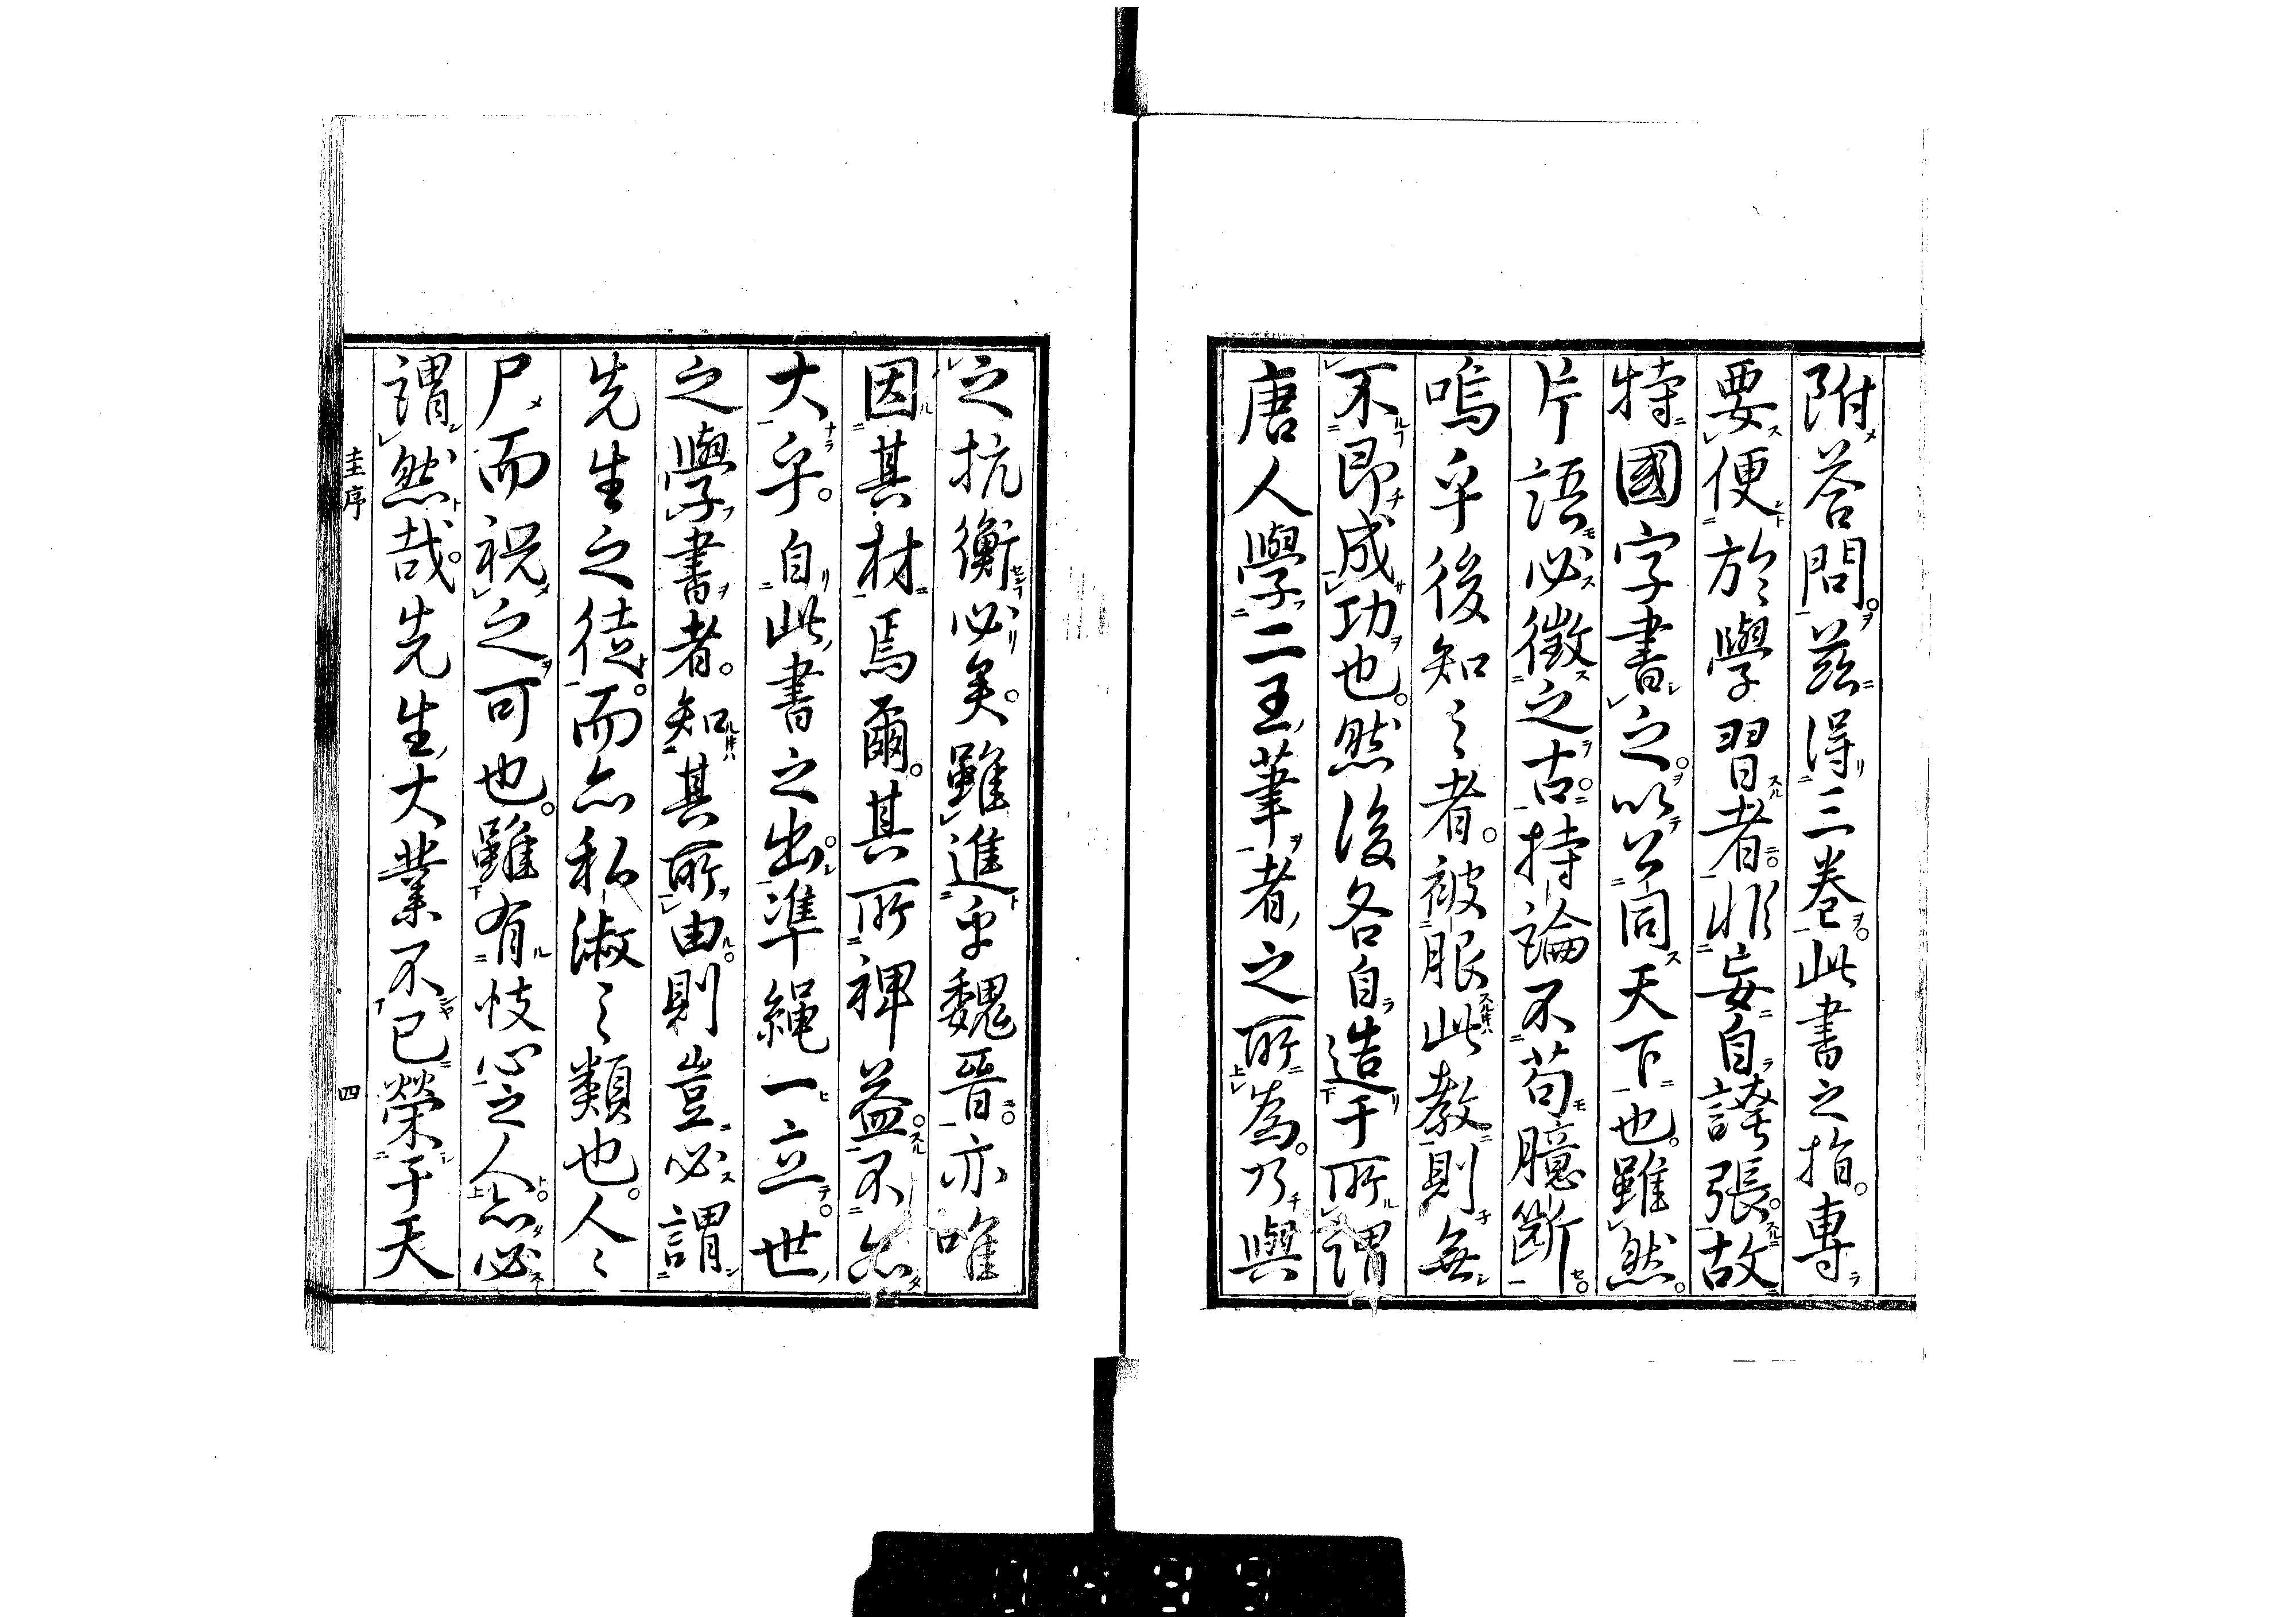 附答問茲得三巻此書之指專
要便於學習者非妄自誇張故
特國字書之以公同天下也雖然
片語必徵之古持論不苟臆斷
嗚乎後知〻者被服此教則無
不即成功也然後各自造于所謂
唐人學二王筆者之所為乃與
之抗衡必矣雖進乎魏晉亦唯
因其材焉爾其所裨益不亦
大乎自此書之出準繩一立世
之學書者知其所由則豈必謂
先生之徒而亦私淑〻類也人〻
尸而祝之可也雖有忮心之人亦必
謂然哉先生大業不已榮于天
圭序
四